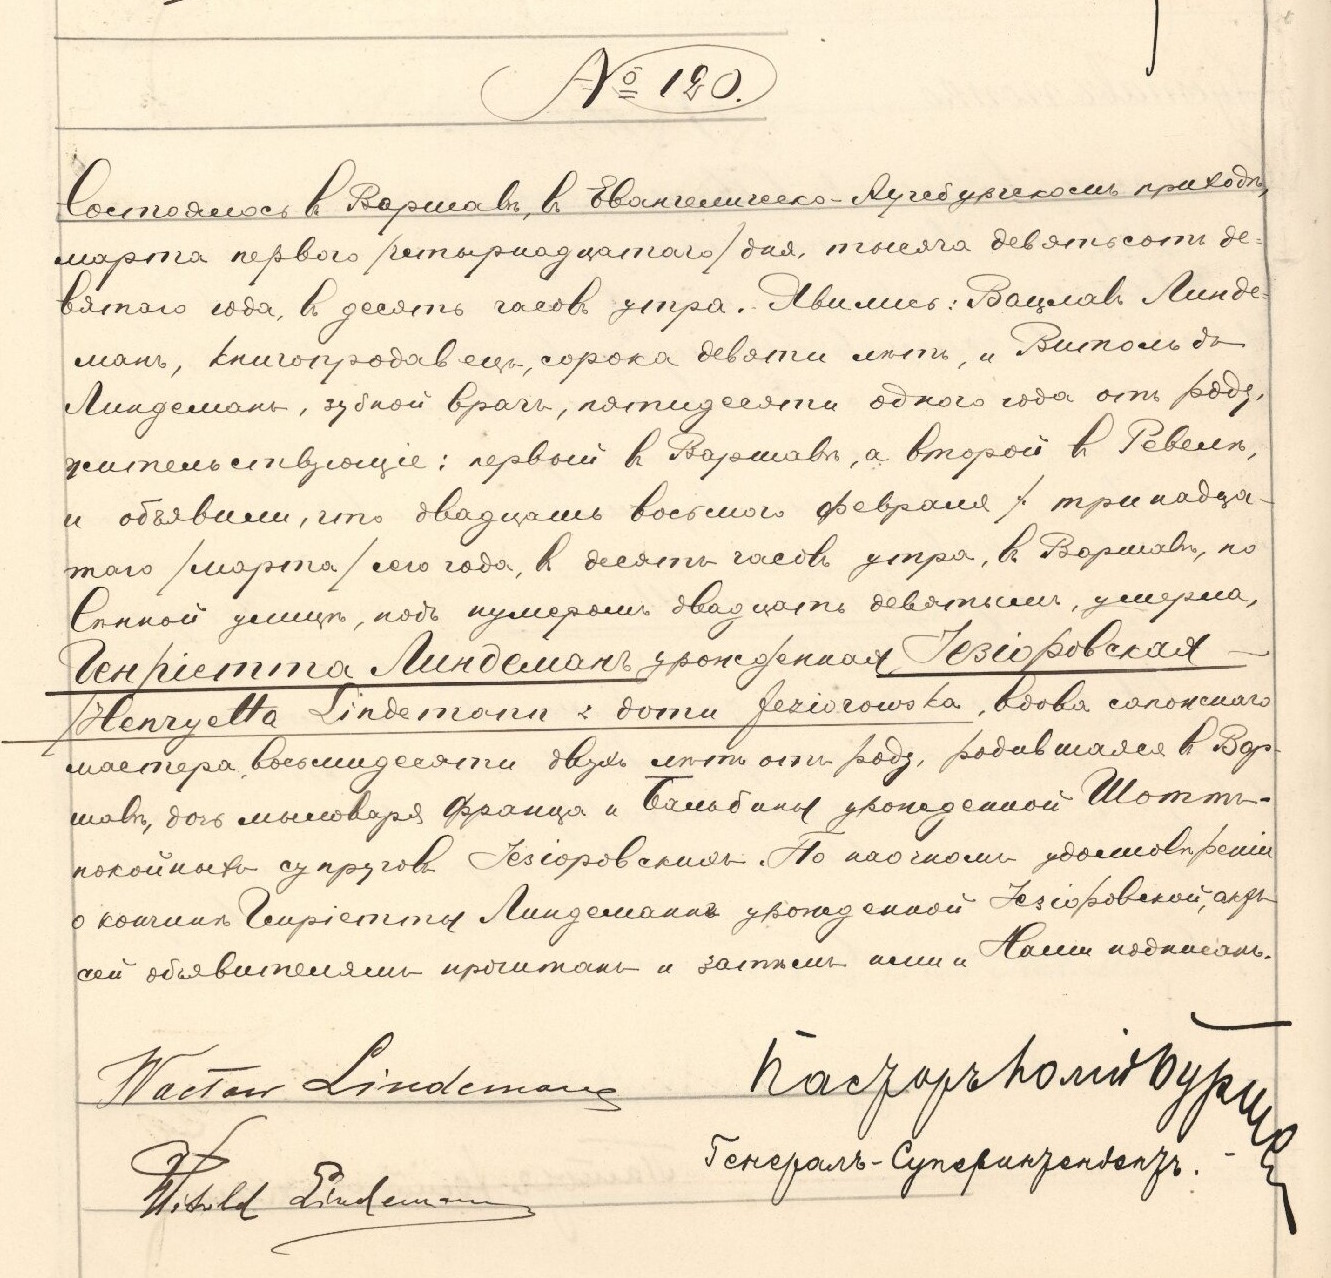 № 120.
Состоялось въ Варшавѣ, въ Евангелическо-Аугсбургскомъ приходѣ,
марта перваго /четырнадцатаго/ дня, тысяча девятьсотъ де-
вятаго года, въ десять часовъ утра. Явились: Вацлавъ Линде-
манъ, книгопродавецъ, сорока девяти лѣтъ, и Витольдъ
Линдеманъ, зубной врачъ, пятидесяти одного года отъ роду,
жительствующіе: первый въ Варшавѣ, а второй въ Ревелѣ,
и объявили, что двадцать восьмого февраля /: тринадца-
таго /марта/ сего года, въ десять часовъ утра, въ Варшавѣ, по
Сѣнной улицѣ, подъ нумеромъ двадцать девятымъ, умерла,
Генріетта Линдеманъ урожденная Іезіоровская —
/Henryetta Lindemann z domu Jeziorowska, вдова сапожнаго
мастера, восьмидесяти двухъ лѣтъ отъ роду, родившаяся въ Вар-
шавѣ, дочь мыловара Франца и Бальбины урожденной Шоттъ-
покойныхъ супруговъ Іезіоровскихъ. По наочномъ удостовѣреніи
о кончинѣ Генріетты Линдеманнъ урожденной Іезіоровской, актъ
сей объявителямъ прочитанъ и затѣмъ ими и Нами подписанъ.
Wacław Lindemann
Пасторъ Юлій Бурше
Генералъ-Суперинтендентъ. -
Witold Lindemann